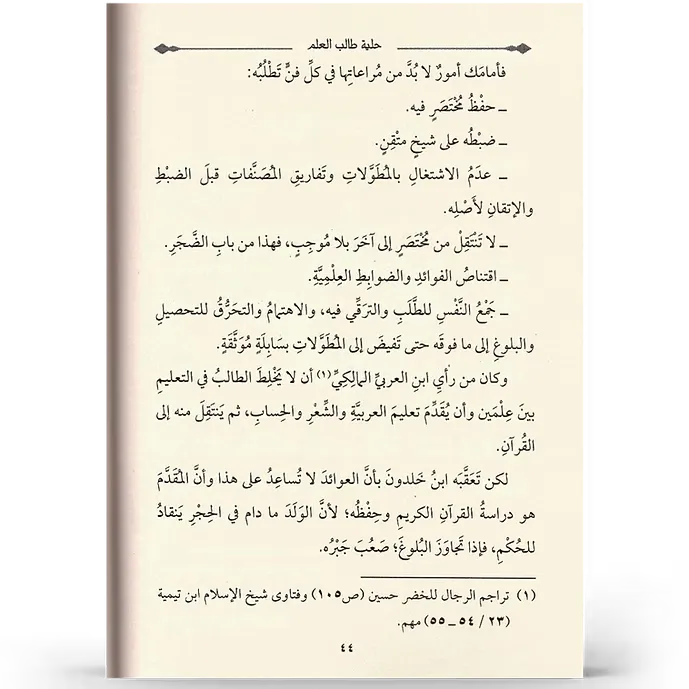 حلية طالب العلم
فأمامَك أمورٌ لا بُدَّ من مُراعاتِها في كلِّ فنٍّ تَطْلُبُه:
ـ حفْظُ مُخْتَصَرٍ فيه.
ـ ضبْطُه على شيخٍ متْقِنٍ.
ـ عدَمُ الاشتغالِ بالمُطَوَّلاتِ وتَفاريقِ المُصَنَّفاتِ قبلَ الضبْطِ
والإتقانِ لأَصْلِه.
ـ لا تَنْتَقِلْ من مُخْتَصَرٍ إلى آخَرَ بلا مُوجِبٍ، فهذا من بابِ الضَّجَرِ.
ـ اقتناصُ الفوائدِ والضوابِطِ العِلْمِيَّةِ.
ـ جَمْعُ النَّفْسِ للطَّلَبِ والترَقِّي فيه، والاهتمامُ والتحَرُّقُ للتحصيلِ
والبلوغِ إلى ما فوقَه حتى تَفيضَ إلى المُطَوَّلاتِ بسَابِلَةٍ مُوَثَّقَةٍ.
وكان من رأيِ ابنِ العربيِّ المالِكِيِّ (١) أن لا يَخْلِطَ الطالبُ في التعليمِ
بينَ عِلْمَين وأن يُقَدِّمَ تعليمَ العربيَّةِ والشِّعْرِ والحِسابِ، ثم يَنتَقِلَ منه إلى
القُرآنِ.
لكن تَعَقَّبَه ابنُ خَلدونَ بأنَّ العوائدَ لا تُساعِدُ على هذا وأنَّ المُقَدَّمَ
هو دراسةُ القرآنِ الكريمِ وحِفْظُه؛ لأنَّ الوَلَدَ ما دام في الحِجْرِ يَنقادُ
للحُكْمِ، فإذا تَجاوَزَ البُلوغَ؛ صَعُبَ جَبْرُه.
(١) تراجم الرجال للخضر حسين (ص١٠٥) وفتاوى شيخ الإسلام ابن تيمية
(٢٣ / ٥٤ ـ ٥٥) مهم.
٤٤